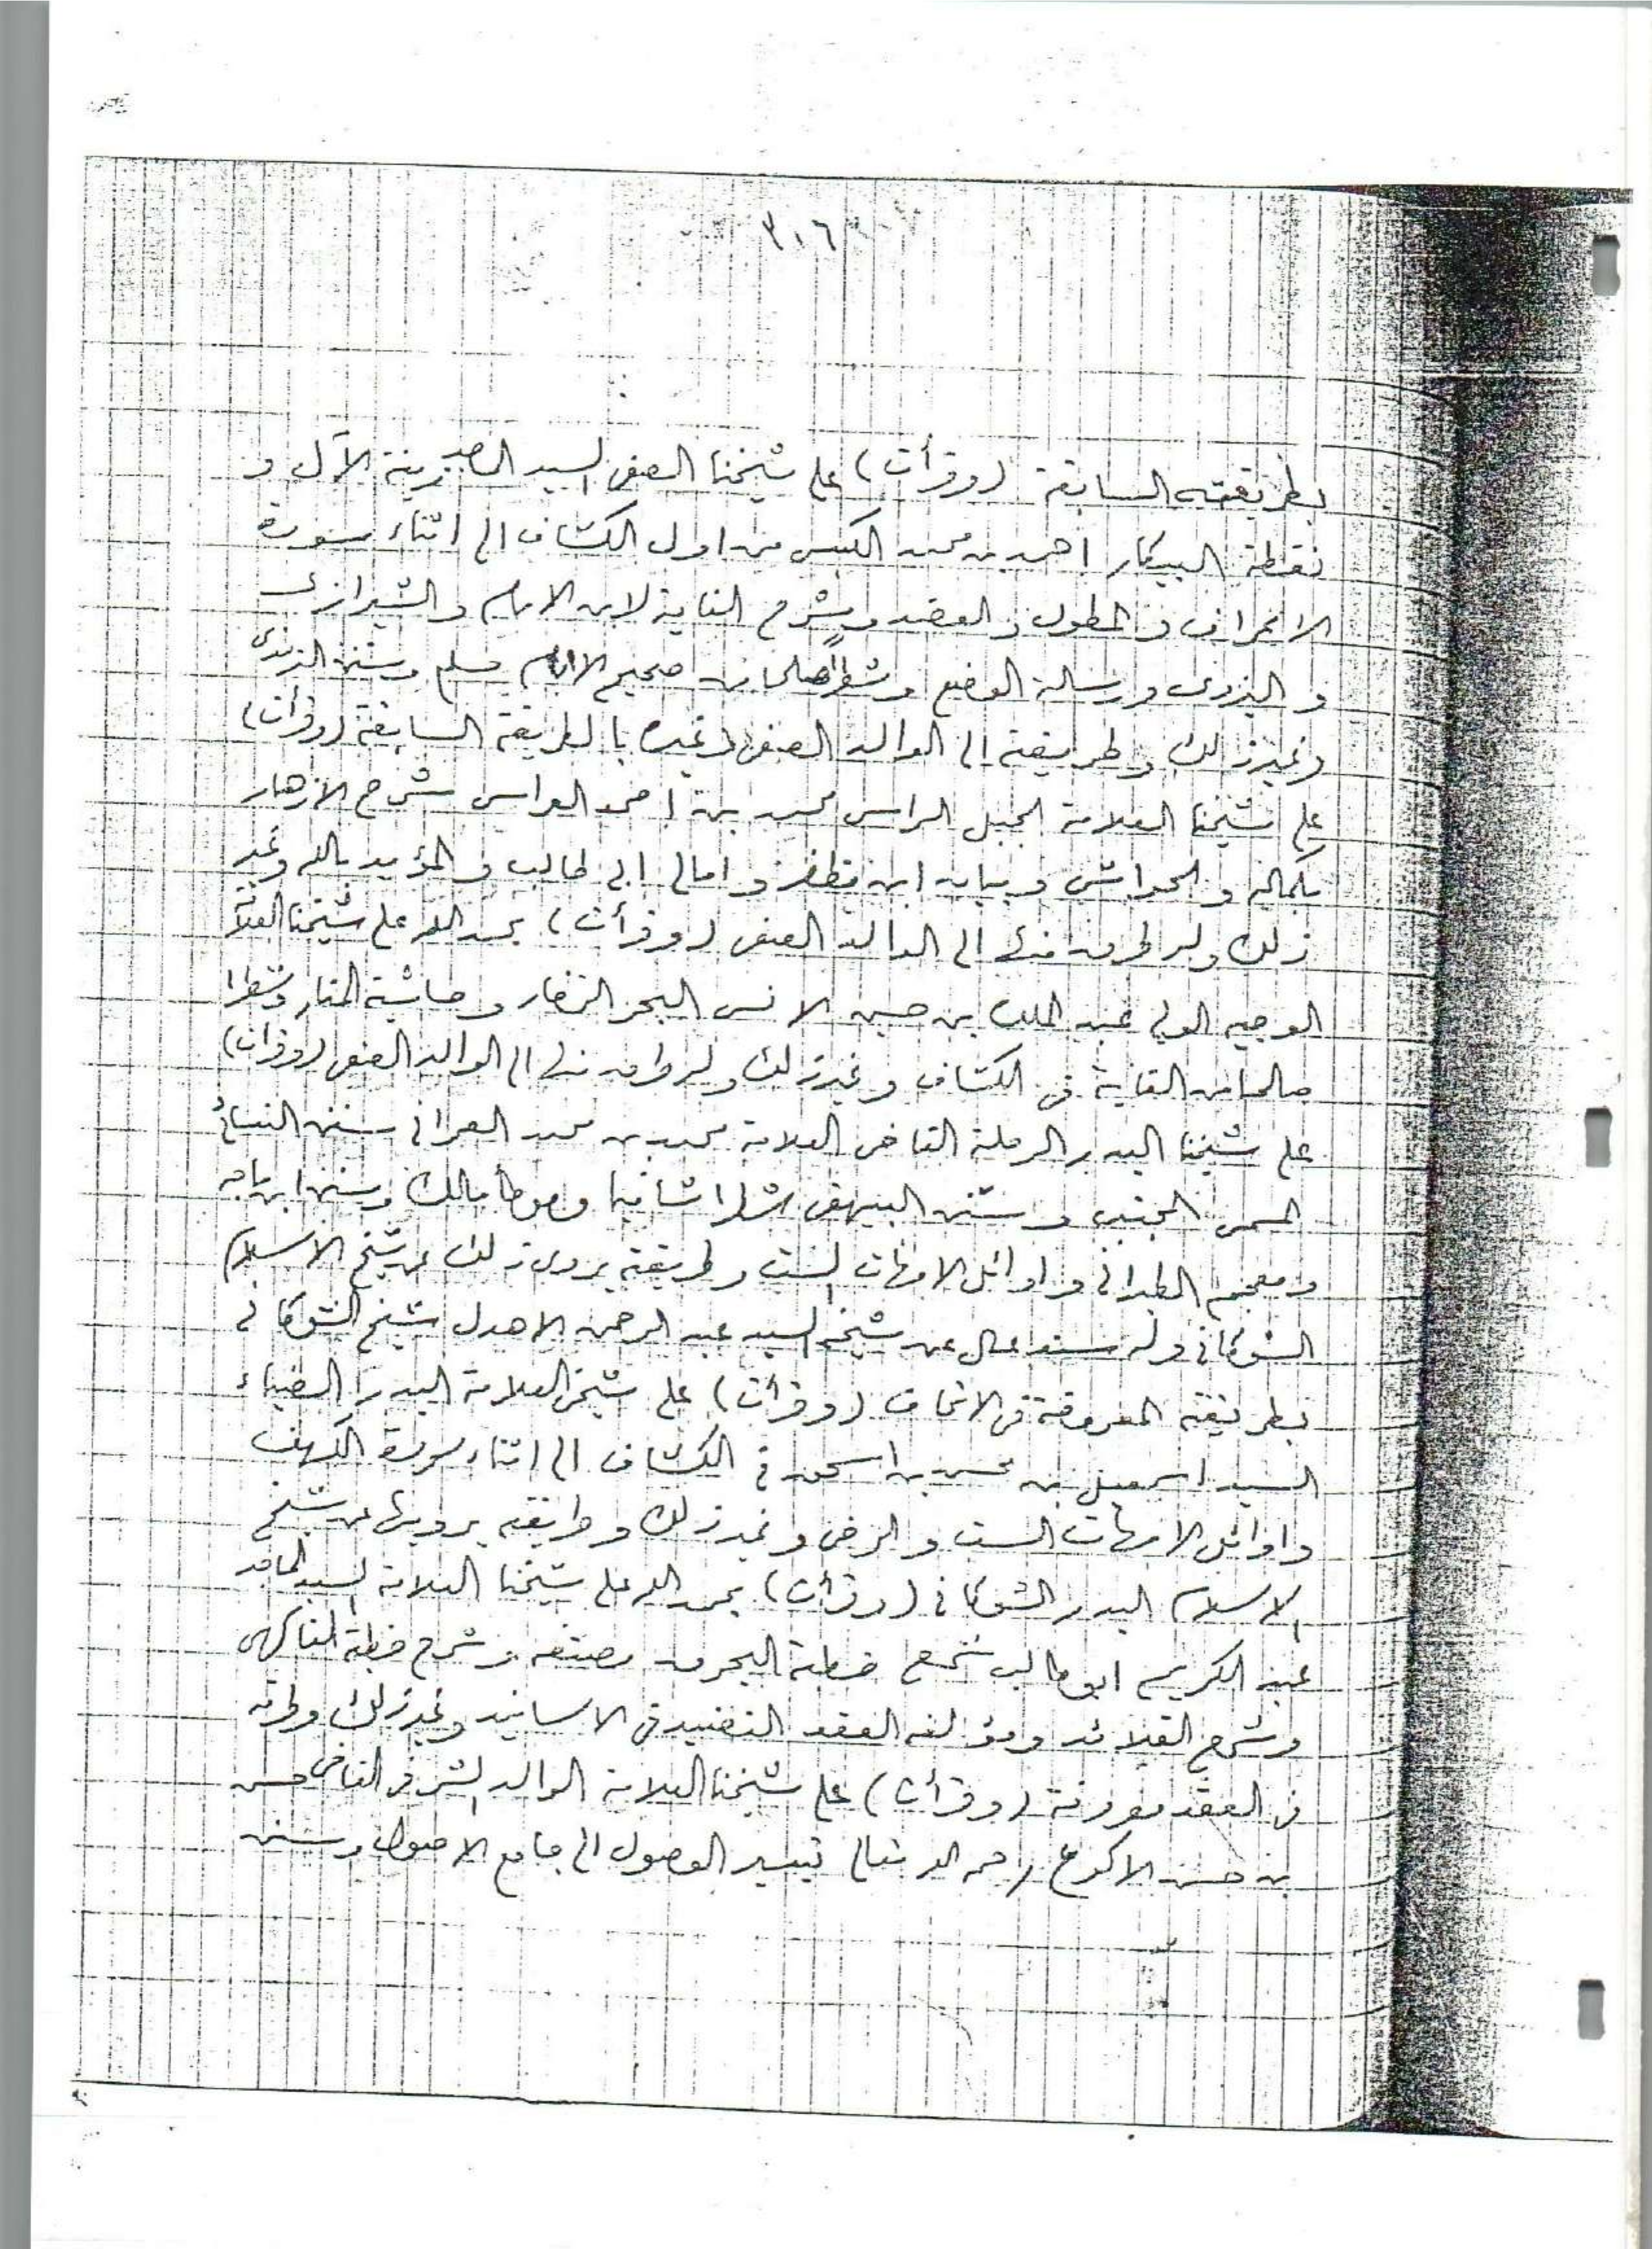 ٣٠٦
بطريقته السابقة (وقرأت) على شيخنا الصفي السيد زينة الآل و
نقطة البيكار احمد بن محمد الكبسي من اول الكشاف الى اثناء سورة
الاعراف والمطول والعضد وشرح الغاية لابن الامام والشيرازي
و اليزدي ورسالة الوضع وشطرا صالحا من صحيح الامام مسلم وسنن الترمذي
وغير ذلك وطريقته الى الوالد الصفي وغيره بالطريقة السابقة (وقرأت)
على شيخنا العلامة الجبل الراسي محمد بن احمد العراسي شرح الازهار
بكماله والحواشي وبيان ابن مظفر وامالي ابي طالب والمؤيد بالله وغير
ذلك وله طرق منها الى الوالد الصفي (وقرأت) بحمد الله على شيخنا العلا
الوجيه الولي عبد الملك بن حسين الانسي البحر الزخار وحاشية المنار وشطرا
صالحا من الغاية في الكشاف وغير ذلك وله طرق منها الى الوالد الصفي (وقرأت)
على شيخنا البدر الرحلة القاضي العلامة محمد بن محمد العمراني سنن النسائي
المسمى المجتبى وسنن البيهقي شطرا شافيا وموطأ مالك وسنن ابن ماجه
ومعجم الطبراني واوائل الامهات الست وطريقته يروي ذلك عن شيخ الاسلام
الشوكاني وله سند عال عن شيخه السيد عبد الرحمن الاهدل شيخ الشوكاني
بطريقته المعروفة في الاتحاف (وقرأت) على شيخي العلامة البدر الضياء
السيد اسمعيل بن محسن بن اسحق في الكشاف الى اثناء سورة الكهف
واوائل الامهات الست والرضي وغير ذلك وطريقته يرويها عن شيخ
الاسلام البدر الشوكاني (وقرأت) بحمد الله على شيخنا العلامة السيد الماجد
عبد الكريم ابو طالب خطبة البحر مصنفه وشرح خطبة الفاكهي
وشرح القلائد ومؤلفه العقد النضيد في الاسانيد وغير ذلك وطرقه
في العقد معروفة (وقرأت) على شيخنا العلامة الوالد الشرفي القاضي حسن
بن حسن الاكوع رحمه الله تعالى تيسير الوصول الى جامع الاصول وسنن